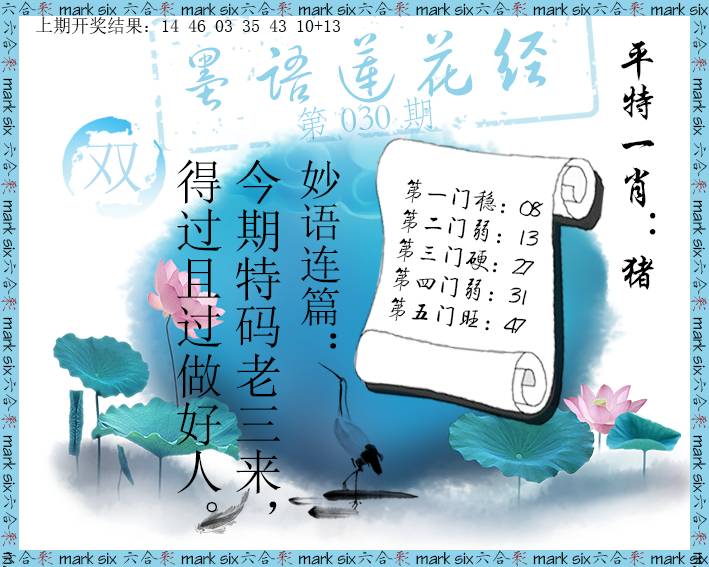 mark six 六合彩 mark six 六合彩 mark six 六合彩 mark six 六合彩 mark six 六合彩 mark six
上期开奖结果: 14 46 03 35 43 10+13
墨语莲花经
第 030 期
双
平特一肖：猪
第一门稳：08
第二门弱：13
第三门硬：27
第四门弱：31
第五门旺：47
妙语连篇：
今期特码老三来，
得过且过做好人。
mark six 六合彩 mark six 六合彩 mark six 六合彩 mark six 六合彩 mark six 六合彩 mark six